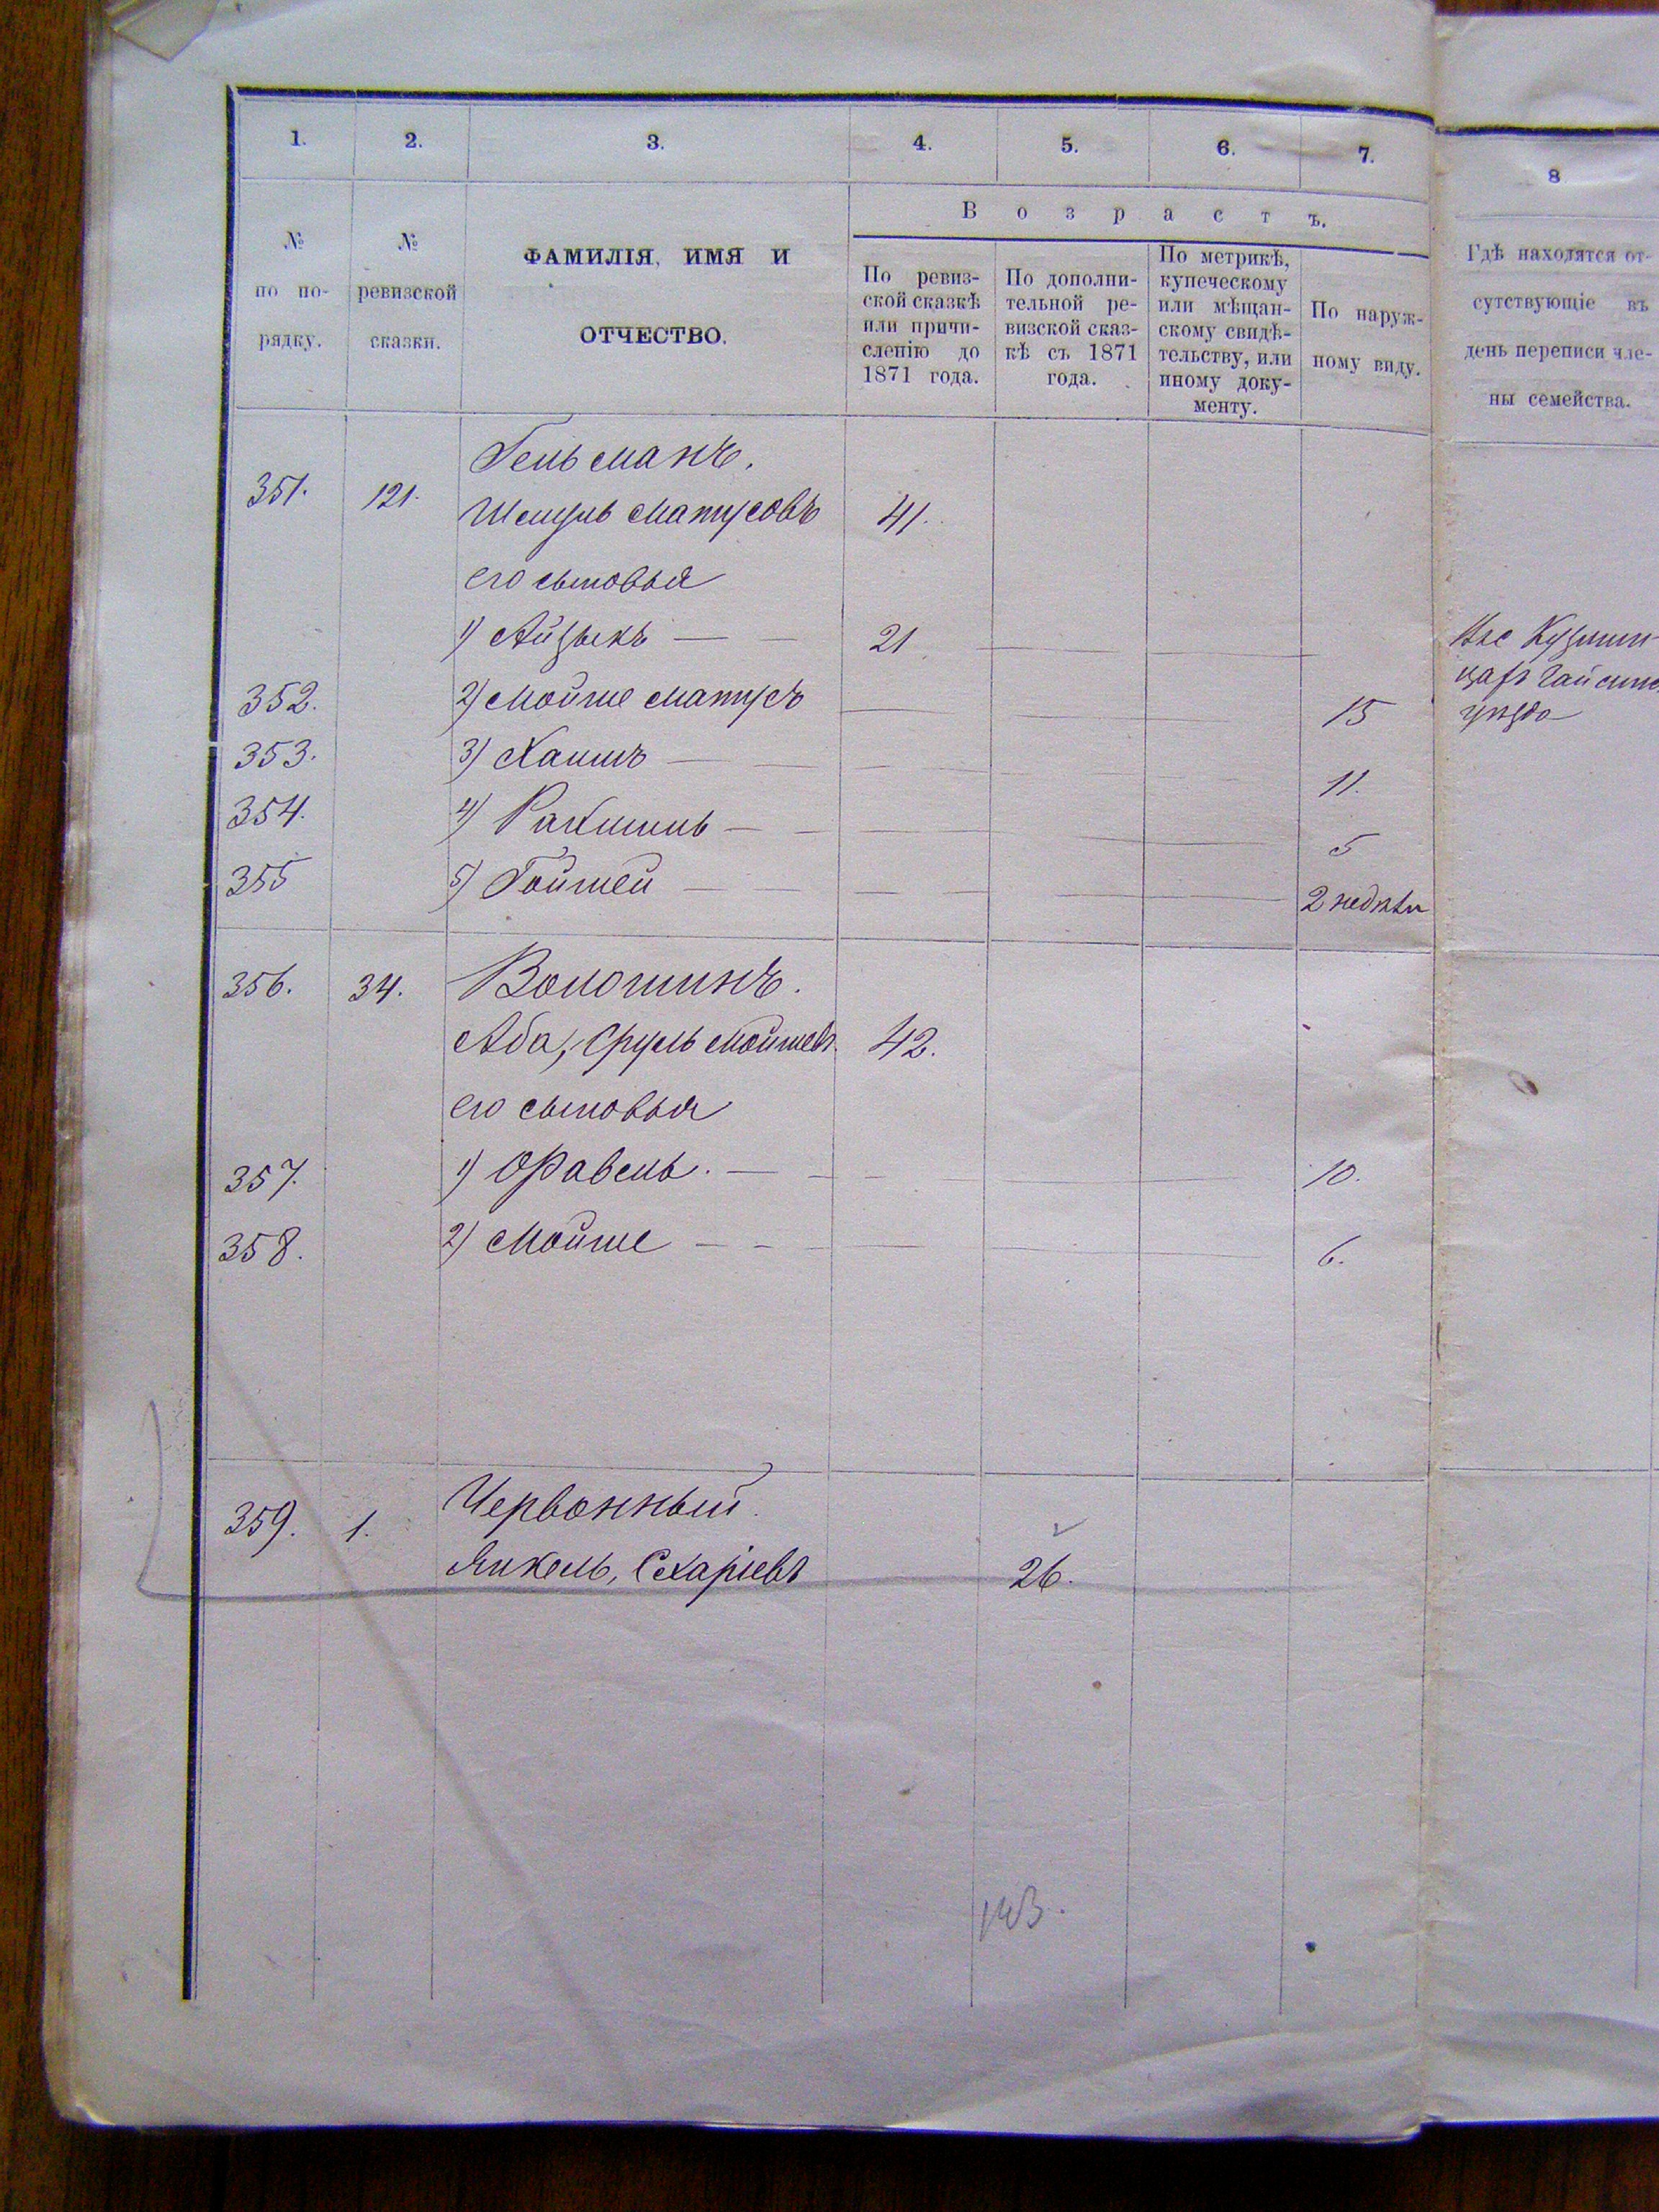 1. 2. 3. 4. 5. 6. 7. 8
В о з р а с т ъ.
№
по по-
рядку.
№
ревизской
сказки.
ФАМИЛІЯ, ИМЯ И
ОТЧЕСТВО.
По ревиз-
ской сказкѣ
или причи-
сленію до
1871 года.
По дополни-
тельной ре-
визской сказ-
кѣ съ 1871
года.
По метрикѣ,
купеческому
или мѣщан-
скому свидѣ-
тельству, или
иному доку-
менту.
По наруж-
ному виду.
Гдѣ находятся от-
сутствующіе въ
день переписи чле-
ны семейства.
Гельманъ.
351. 121. Шмуль Матусовъ 41.
его сыновья
1) Айзыкъ — — 21
352. 2) Мойше Матусъ 15
353. 3) Хаимъ — — 11.
354. 4) Рахмиль — — 5
355 5) Гойшей — — 2 недѣли
уѣзда
356. 34. Волошинъ.
Аба, Сруль Мошкев. 42.
его сыновья
357. 1) Фавель. — — 10.
358. 2) Мойше — — 6.
359. 1. Червонный.
Янкель, Схаріевъ 26.